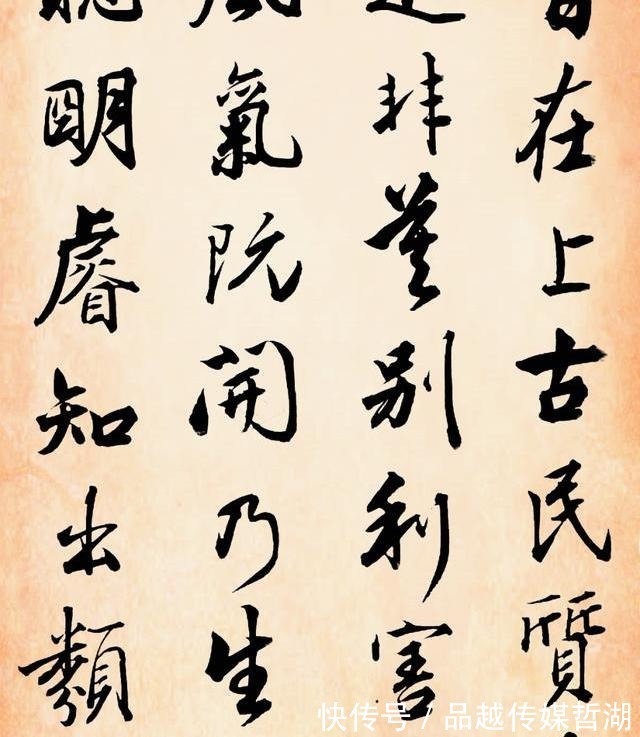 昔在上古民質
是非莫别利害
風氣既開乃生
聰明睿知出類
快传号 / 品越传媒哲湖